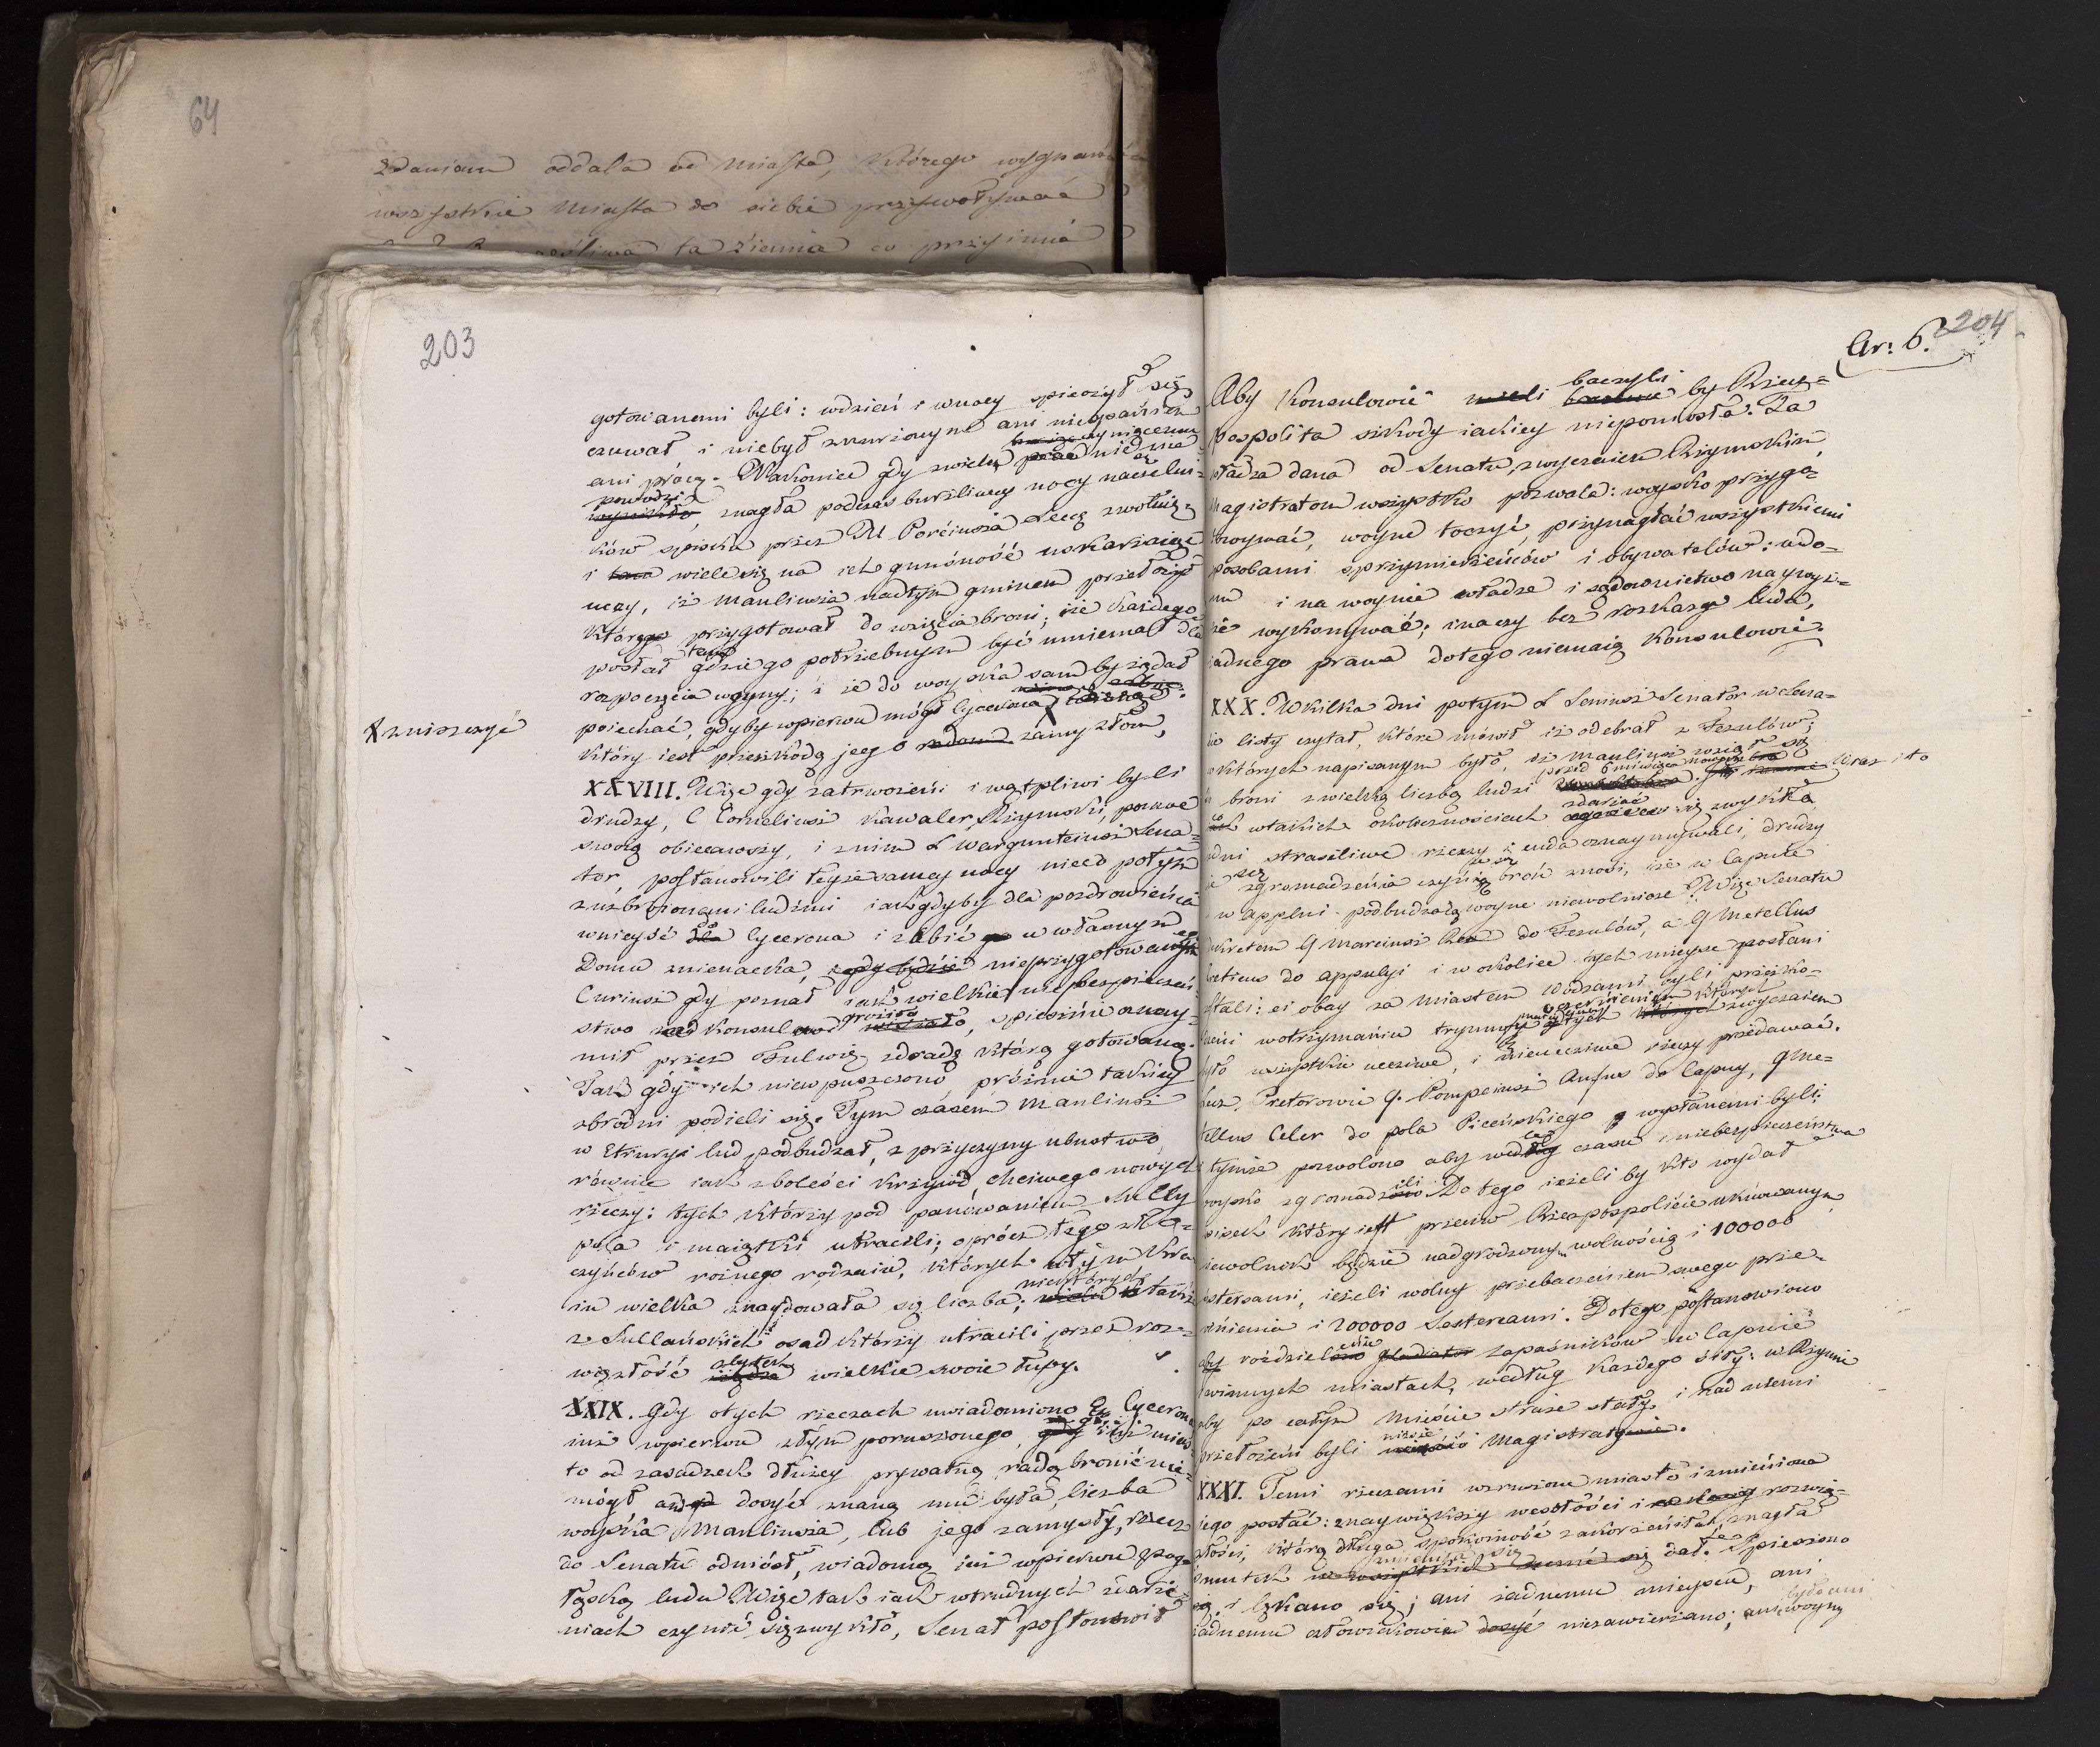 64
zdaniem oddala od Miasta, którego wygnańca
wszystkie Miasta do siebie przywoływać
ta ziemia co przyimie
203
gotowanemi byli: wdzień i wnocy spieszył się
czuwał i niebył zmorzonym ani niespaniem
ani pracą. Nakoniec gdy zwielu prac niczemu nie
powodzi, znagła podczas burzliwey nocy naczelni-
ków spisku przez M Porciusza Lecę zwołuje
i wiele się na ich gnuśność uskarżając
uczy, iż Manliusza nadtym gminem przełożył
którego przygotował do wzięcia broni; iże każdego
posłał tam gdzie go potrzebnym być mniemał dla
rozpoczęcia woyny; i że do woyska sam by żądał
poiechać, gdyby wpierwu mógł Cycerona X
X zniszczyć
który iest przeszkodą jego zamysłom,
XXVIII. Więc gdy zatrwożeni i wątpliwi byli
drudzy, C Corneliusz Kawaler Rzymski, pomoc
swoią obiecawszy, i znim L Wargunteiusz Sena-
tor, postanowili teyże samey nocy nieco potym
zuzbroionemi ludźmi iak gdyby dla pozdrowienia
wnieyść do Cycerona i zabić w własnym
Domu znienacka, nieprzygotowanego
Curiusz gdy poznał iak wielkie niebezpieczeń-
stwo Konsulowi groziło, spiesznie oznay-
mił przez Fulwię zdradę którą gotowano.
Tak gdy ich niewpuszczono próżnie takiey
zbrodni podieli się. Tym czasem Manliusz
w Etruryi lud podbudzał, z przyczyny ubustwa
równie iak zboleści krzywd, chciwego nowych
rzeczy: tych którzy pod panowaniem Sulli
pola i maiątki utracili; oprócz tego zło-
czyńców rożnego rodzaiu, których w tym kra-
iu wielka znaydowała się liczba; niektórych także
z Sullańskich osad którzy utracili przez roz-
wiązłość zbytek wielkie swoie łupy.
XXIX. Gdy otych rzeczach uwiadomiono Cycerona
iuż wpierwu złym poruszonego, gdy iuż mias-
to od zasadzek dłużey prywatną radą bronić nie-
mógł ani dosyć znaną mu była, liczba
woyska Manliusza, lub jego zamysły, rzecz
do Senatu odniósł, wiadomą iuż wpierwu z pog-
łoską ludu Więc tak iak w trudnych zdarze-
niach czynić się zwykło, Senat postanowił
Ar: 6. 204
Aby Konsulowie baczyli by Rzecz-
pospolita szkody iakiey nieponiosła. Ta
władza dana od Senatu, zwyczaiem Rzymskim
Magistratom wszystko pozwala: woysko przygo-
towywać, woynę toczyć, przynaglać wszystkiemi
sposobami sprzymierzeńców i obywatelów: w do-
mu i na woynie władze i sądownictwo naywyż-
sze wykonywać; inaczy bez rozkazu ludu,
żadnego prawa dotego niemaią Konsulowie.
XXX. W kilka dni potym L Seniusz Senator w Sena-
cie listy czytał, które mówił iż odebrał z Fezulów;
w których napisanym było, iż Manliusz wziął się
do broni z wielką liczbą ludzi przed 6 miesiąca nowembra. Wraz i to
co w takich okolicznościach zdarzać się zwykło
iedni straszliwe rzeczy i cuda oznaymywali, drudzy
że zgromadzenia czynią, broń znosi, iże w Capule
i w Appulii podbudzaią woynę niewolnicze. Więc Senatu
dekretem Q Marciusz Rex do Fezulów, a Q Metellus
Creticus do Appulyi i w okolice tych mieysc posłani
zostali: ci obay za miastem Wodzami byli przeszko-
dzeni wotrzymaniu tryumfu których zwyczaiem
było wszystkie uczciwe, i nieuczciwe rzeczy przedawać.
Lecz Pretorowie Q. Pompeiusz Rufus do Capuy, Q Me-
tellus Celer do pola Piceńskiego wysłanemi byli:
i tymże pozwolono aby według czasu i niebezpieczeństwa
woysko zgromadzili. Do tego ieżeli by kto wydał
spisek który iest przeciw Rzeczpospolicie uknowanym
niewolnik będzie nadgrodzony wolnością i 100000
sestersami, ieżeli wolny przebaczeniem swego prze-
winienia i 200000 Sestersami. Dotego postanowiono
aby rozdzielono zapaśników w Capuie
i winnych miastach, według każdego siły: w Rzymie
aby po całym Mieście straże stały, i nad niemi
przełożeni byli niższe Magistraty.
XXXI. Temi rzeczami wzruszone miasto i zmieniona
iego postać: z naywiększey wesołości i rozwią-
złości, którą długa spokoiność zakorzeniła, znagła
smutek dał. Spieszono
się, i lękano się; ani żadnemu mieyscu, ani
żadnemu człowiekowi niezawierzano; ani woyny